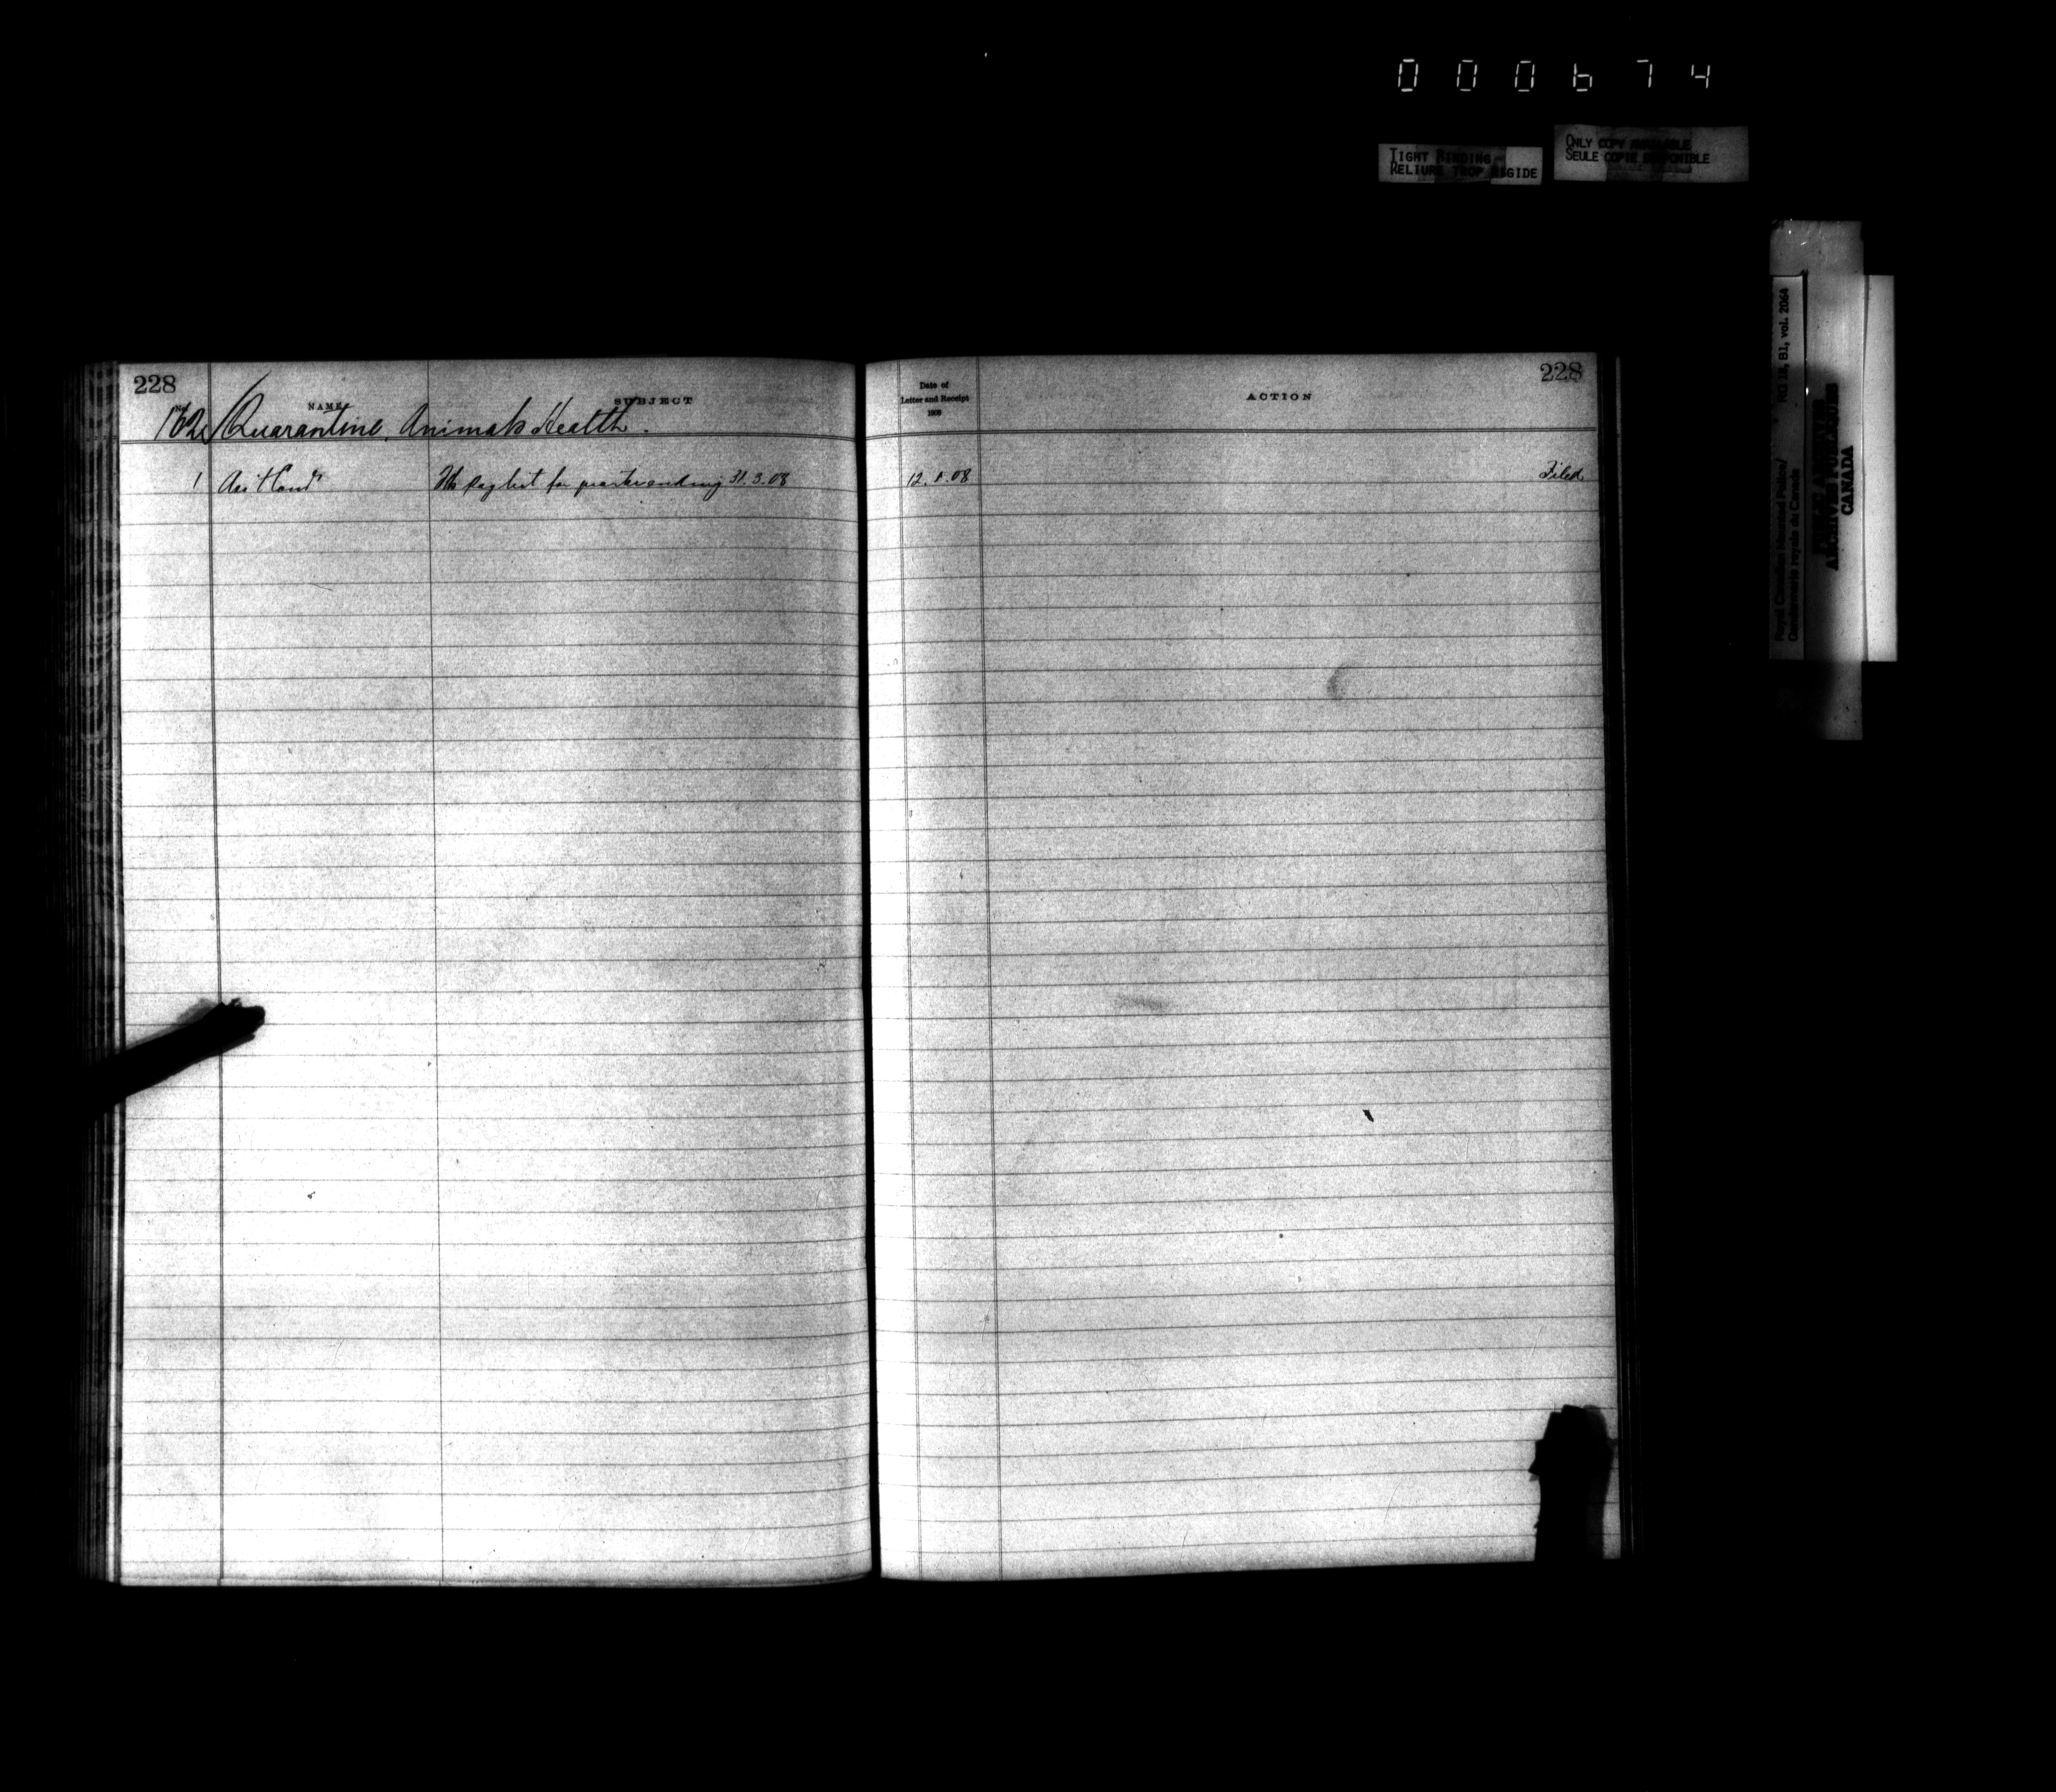 000674
TIGHT BINDING
RELIURE TROP RIGIDE
ONLY COPY AVAILABLE
SEULE COPIE DISPONIBLE
RG 18, B1, vol. 2064
Royal Canadian Mounted Police/
Gendarmerie royale du Canada
PUBLIC ARCHIVES
ARCHIVES PUBLIQUES
CANADA
228
No. NAME SUBJECT
162 Quarantine, Animals Health.
1 Asst Comr Paylist for quarter ending 31.3.08
Date of
Letter and Receipt
1908
ACTION
228
12. .08 Filed